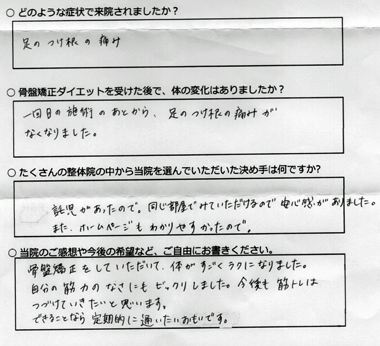 ○ どのような症状で来院されましたか?
足のつけ根の痛み
○ 骨盤矯正ダイエットを受けた後で、体の変化はありましたか?
一回目の施術のあとから、足のつけ根の痛みが
なくなりました。
○ たくさんの整体院の中から当院を選んでいただいた決め手は何ですか?
託児があったので。同じ部屋でみていただけるので安心感がありました。
また、ホームページもわかりやすかったので。
○ 当院のご感想や今後の希望など、ご自由にお書きください。
骨盤矯正をしていただいて、体がすごくラクになりました。
自分の筋力のなさにもビックリしました。今後も筋トレは
つづけていきたいと思います。
できることなら定期的に通いたいおもいです。